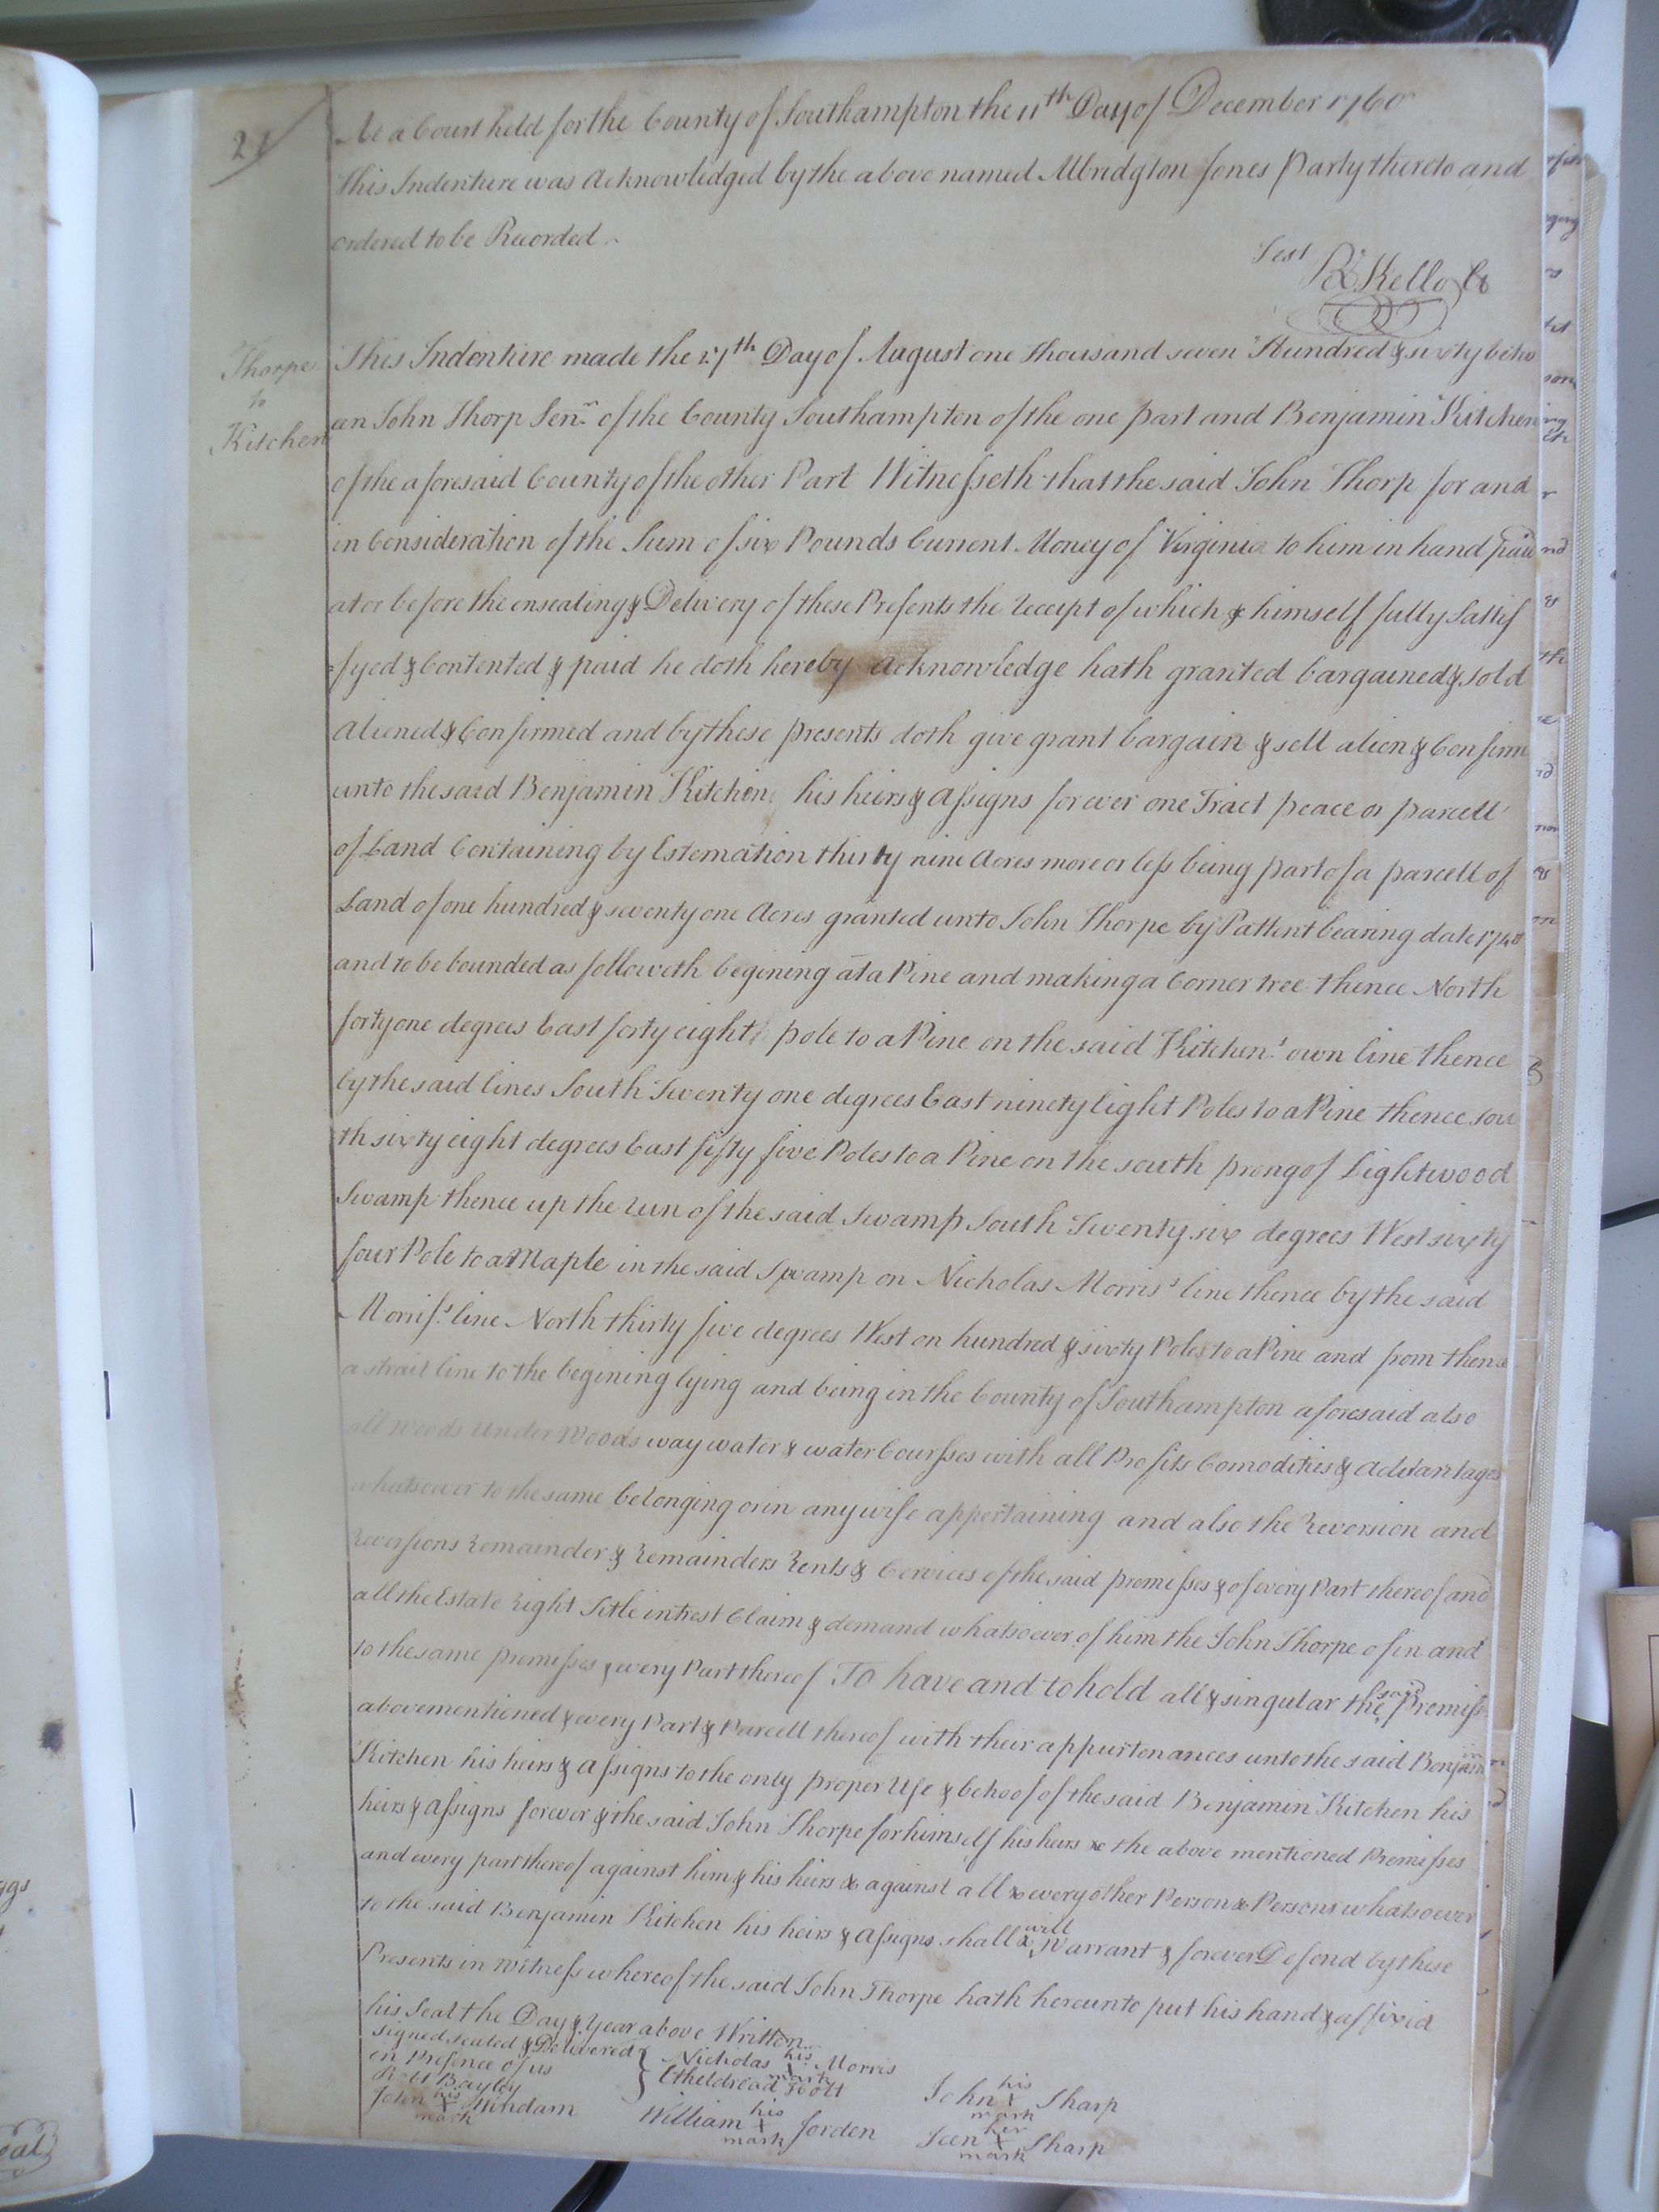 21
At a Court held for the County of Southampton the 11th Day of December 1760
This Indenture was Acknowledged by the above named Albridgton Jones Party thereto and
ordered to be Recorded
Test
Rd Kello
Thorpe
to
Kitchen
This Indenture made the 27th Day of August one thousand seven Hundred & sixty betw
een John Thorp Senr. of the County Southampton of the one part and Benjamin Kitchen
of the aforesaid County of the other Part Witnesseth that the said John Thorp for and
in Consideration of the Sum of six Pounds Current Money of Virginia to him in hand paid
at or before the ensealing & Delivery of these Presents the receipt of which & himself fully Sattis
fyed & Contented & paid he doth hereby acknowledge hath granted bargained & sold
aliened & Confirmed and by these presents doth give grant bargain & sell alien & Confirm
unto the said Benjamin Kitchen his heirs & assigns forever one Tract peace or parcell
of Land Containing by Estemation thirty nine Acres more or less being part of a parcell of
Land of one hundred & seventy one Acres granted unto John Thorpe by Pattent bearing date 1748
and to be bounded as followeth begining at a Pine and making a Corner tree thence North
forty one degrees East forty eight pole to a Pine on the said Kitchen's own line thence
by the said lines South Twenty one degrees East ninety Eight Poles to a Pine thence sou
th sixty eight degrees East fifty five Poles to a Pine on the south prong of Lightwood
Swamp thence up the run of the said Swamp South Twenty six degrees West sixty
four Pole to a Maple in the said Swamp on Nicholas Morris's line thence by the said
Morris's line North thirty five degrees West on hundred & sixty Poles to a Pine and from thence
a strait line to the begining lying and being in the County of Southampton aforesaid also
all woods under Woods way water & water Coursses with all Profits Comodities & advantages
whatsoever to the same belonging or in any wise appertaining and also the reversion and
reversions remainder & remainders rents & Cervices of the said premisses & of every Part thereof and
all the Estate right Title intrest Claim & demand whatsoever of him the John Thorpe of in and
to the same premisses & every Part thereof To have and to hold all & singular the said Premises
abovementioned & every Part & Parcell thereof with their appurtenances unto the said Benjamin
Kitchen his heirs & assigns to the only proper Use & behoof of the said Benjamin Kitchen his
heirs & assigns forever & the said John Thorpe for himself his heirs &c the above mentioned Premisses
and every part thereof against him & his heirs & against all & every other Person & Persons whatsoever
to the said Benjamin Kitchen his heirs & assigns shall & will Warrant & forever Defend by these
Presents in Witness whereof the said John Thorpe hath hereunto put his hand & affixed
his Seal the Day & Year above Written
signed sealed & Delivered
in Presence of us
Bayley
John his X mark Windam
Nicholas his X mark Morris
Etheldread Holt
William his X mark Jorden
John his X mark Tharp
Seen her X mark Tharp